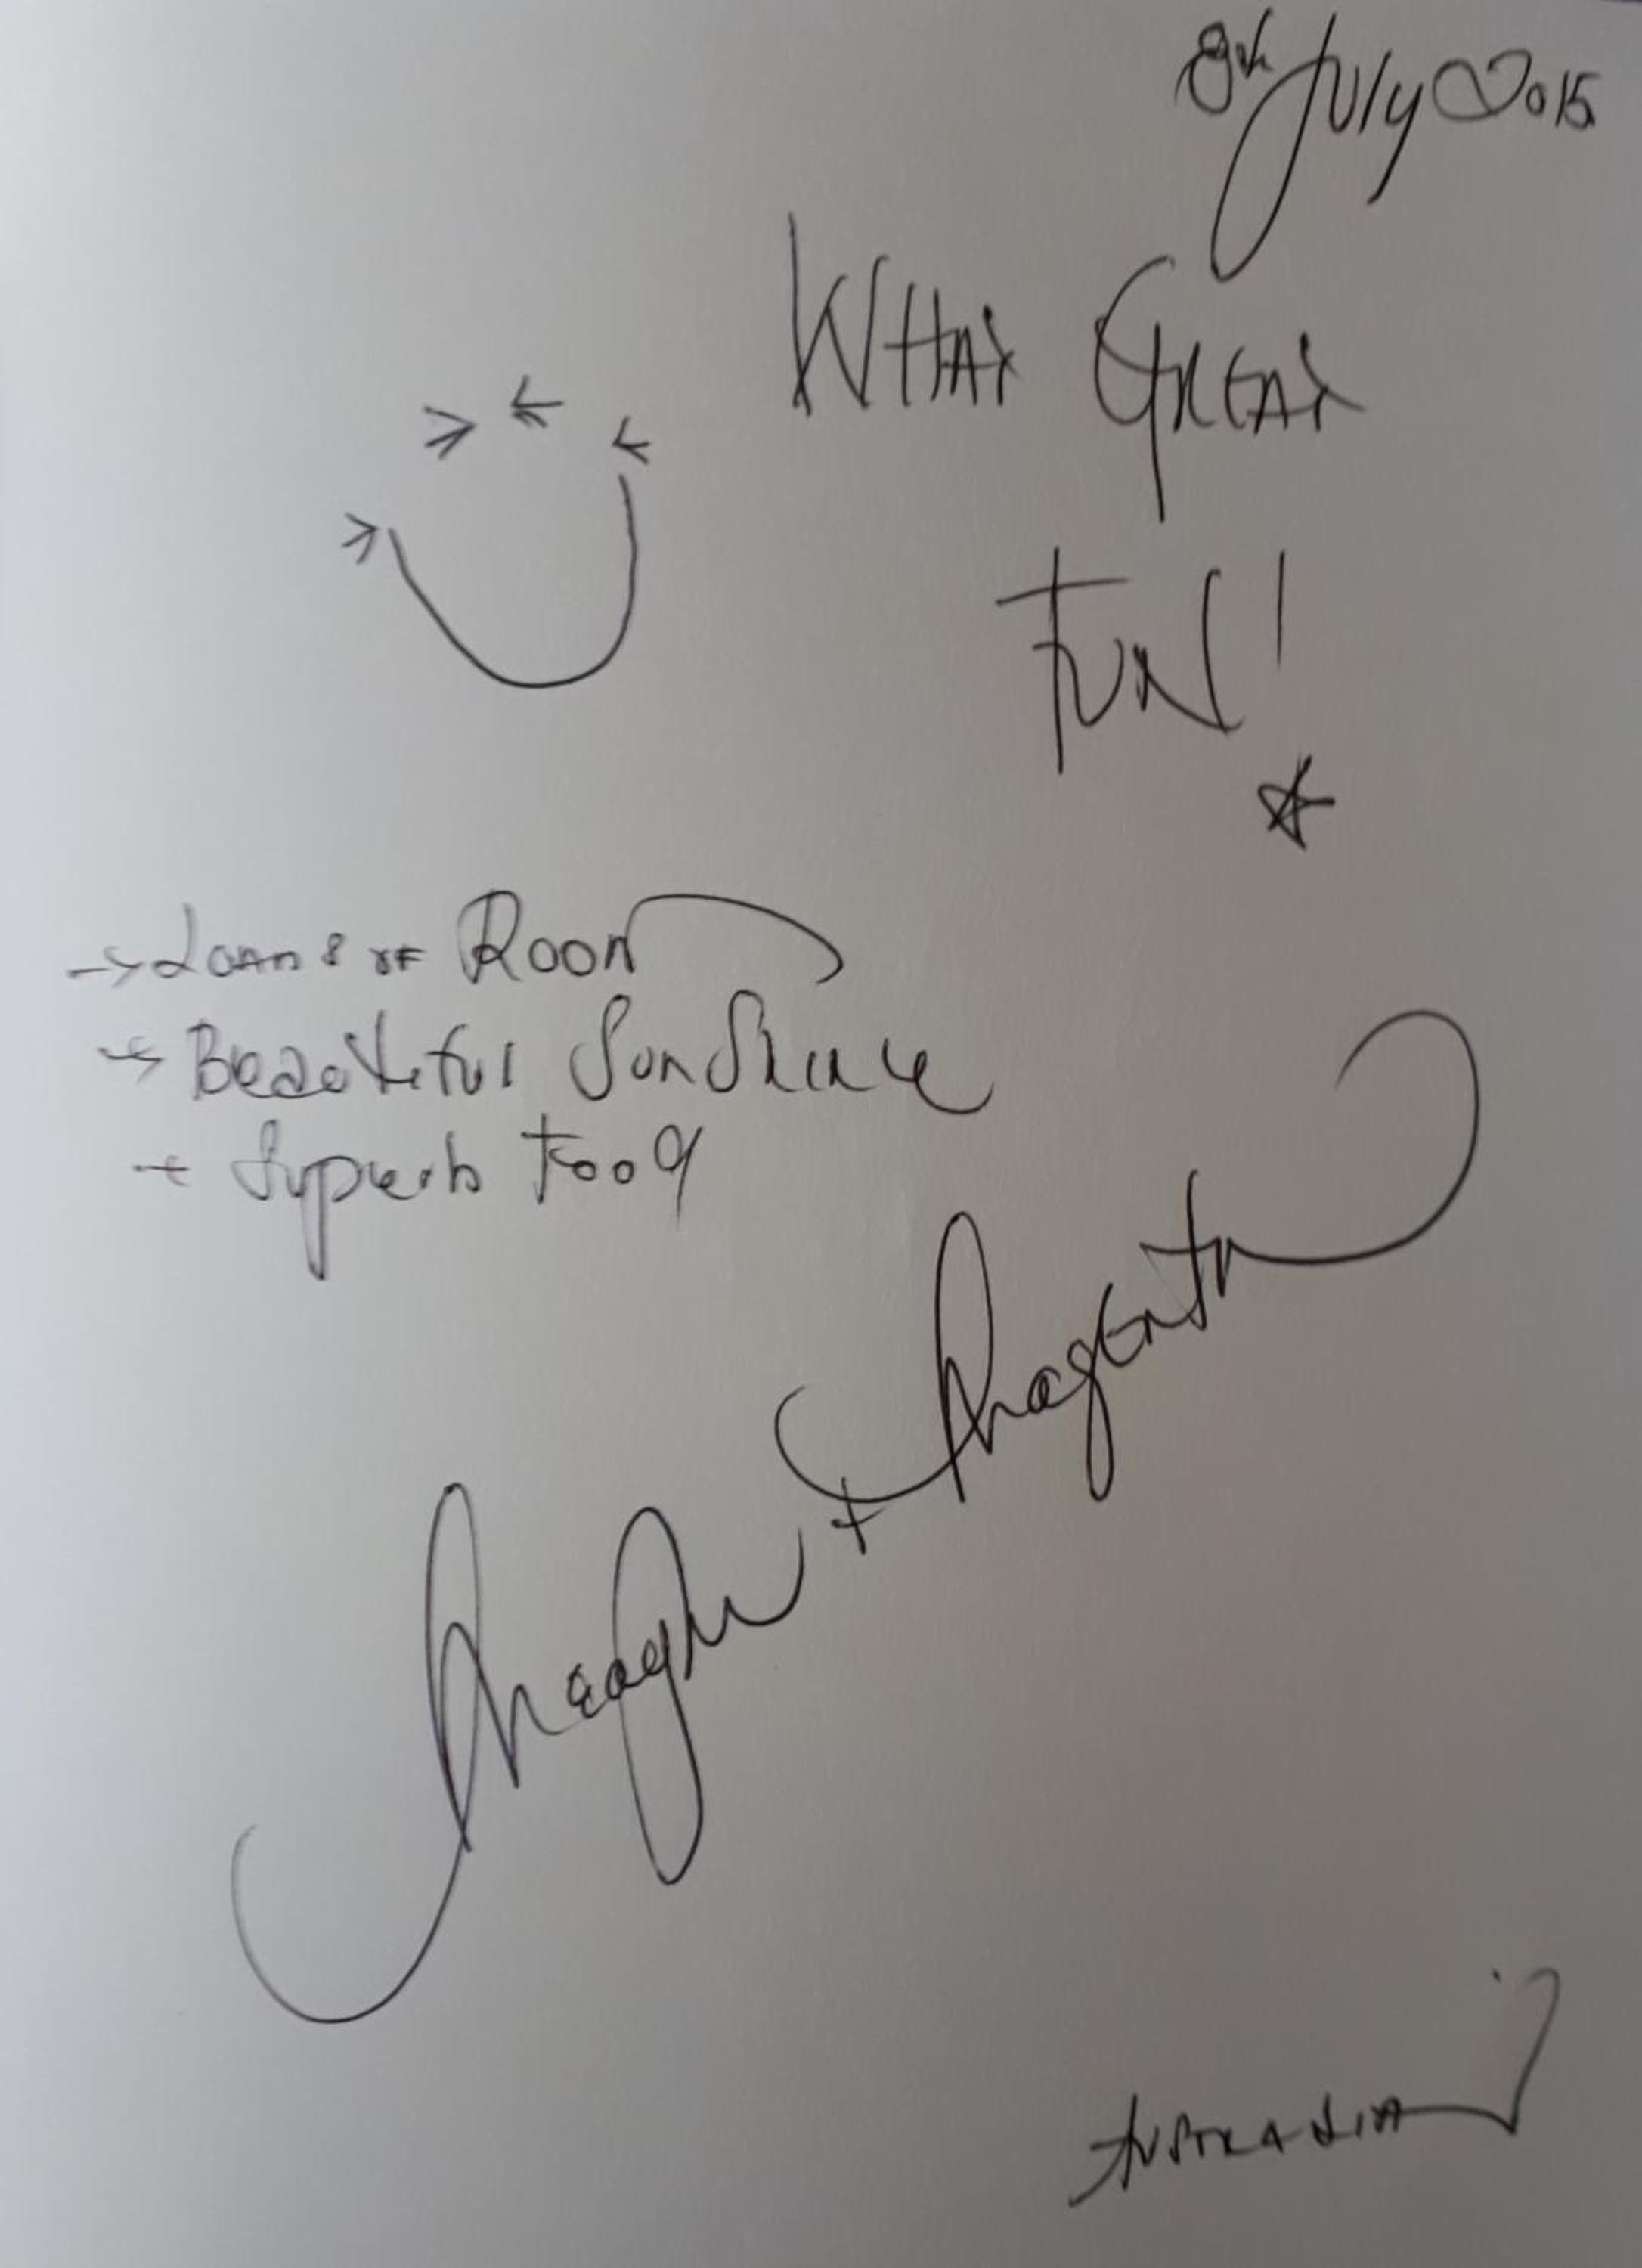 8th July 2015
WHAT GREAT
FUN!
→ of Room
→ Beautiful Sunshine
→ Superb Food
+ Magenta
AUSTRALIA